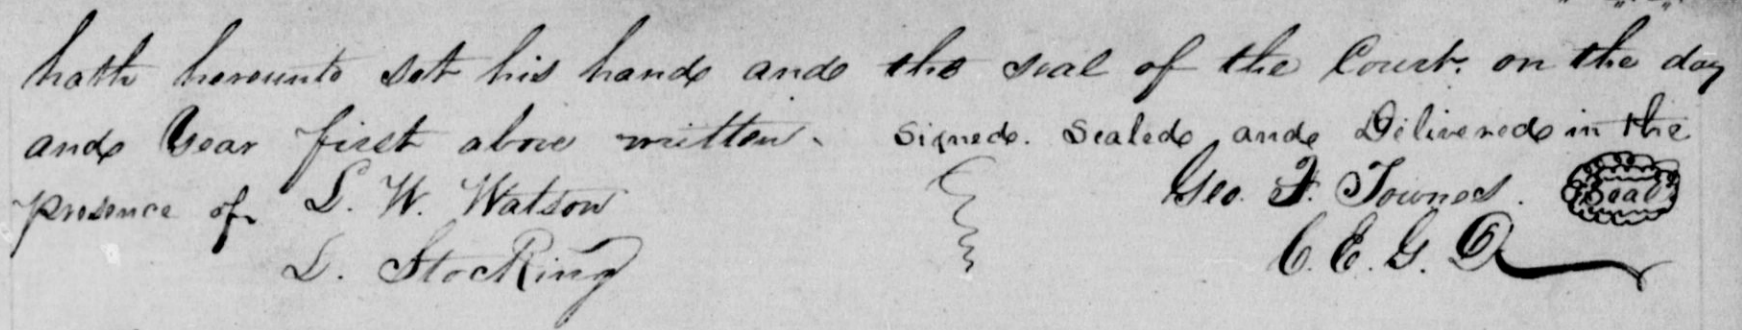 hath hereunto set his hand and the seal of the Court. on the day
and Year first above written. Signed. Sealed and Delivered in the
presence of L. W. Watson Geo. F. Townes. Seal
L. Stocking C. E. G. D